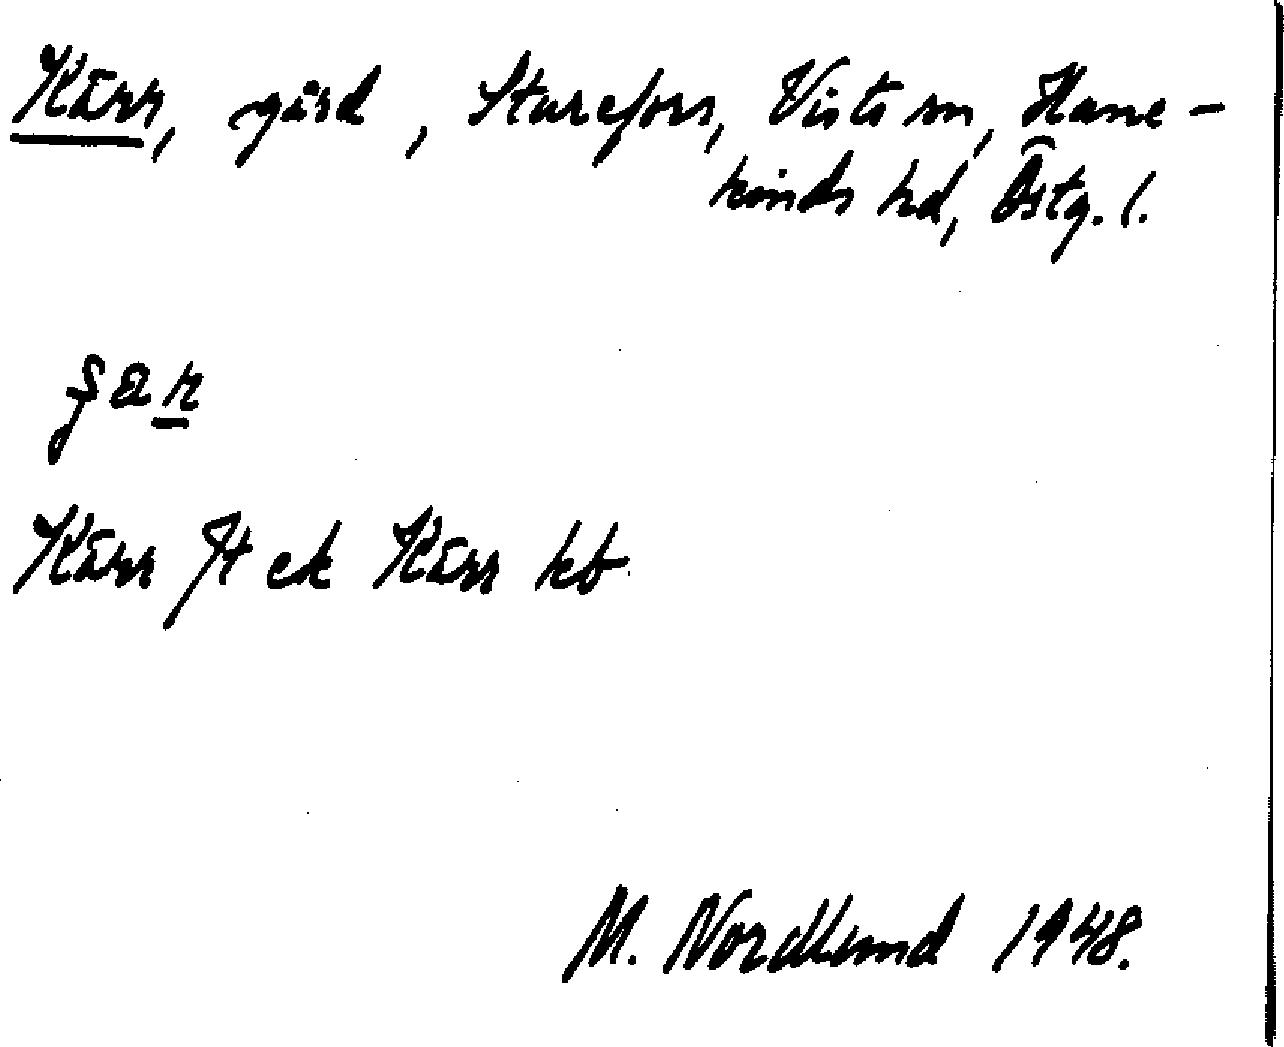 Kärr, gård, Sturefors, Vists sn, Hane-
kinds hd, Östg. l.
Kärr Jt ek Kärr kb
M. Nordlund 1948.